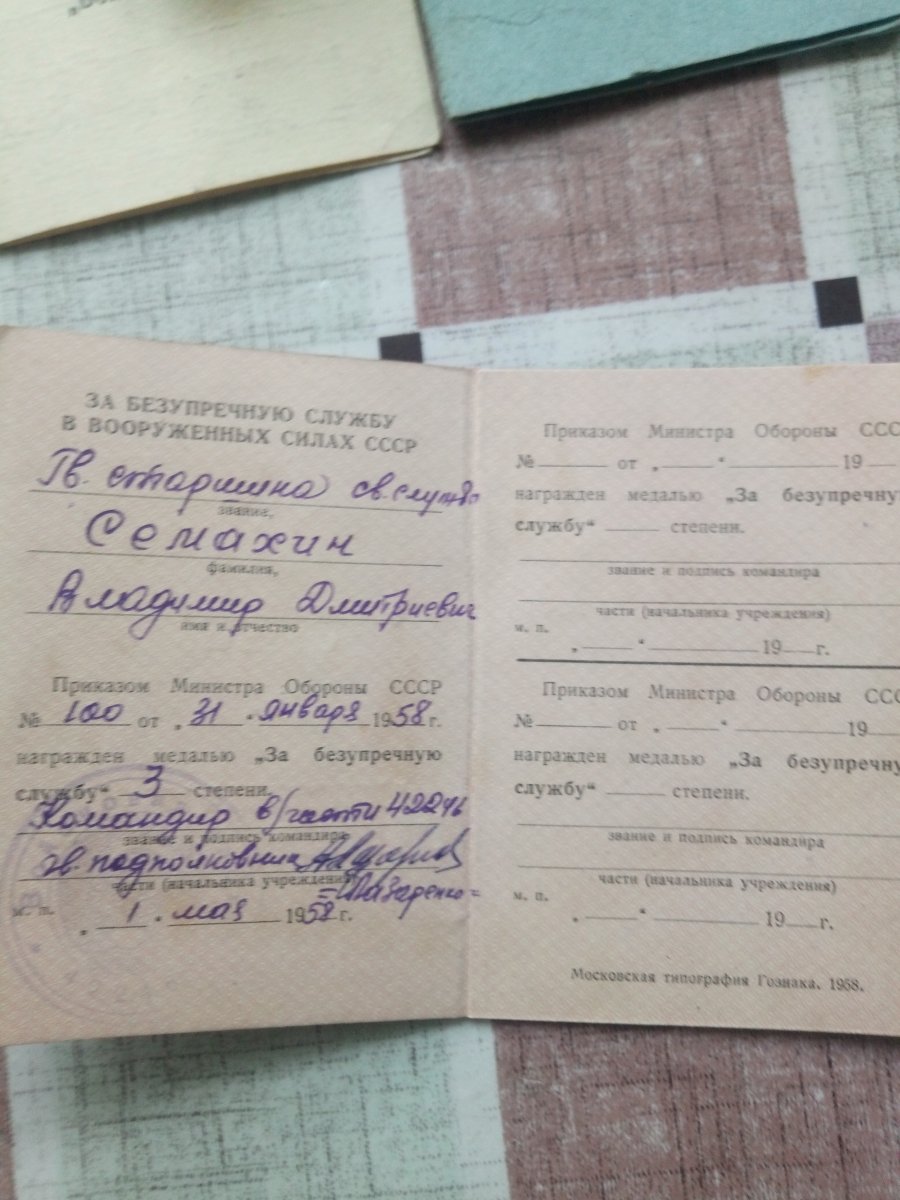 ЗА БЕЗУПРЕЧНУЮ СЛУЖБУ
В ВООРУЖЕННЫХ СИЛАХ СССР
Гв. старшина св. службы
звание,
Семахин
фамилия,
Владимир Дмитриевич
имя и отчество
Приказом Министра Обороны СССР
№ 100 от „31“ января 1958 г.
награжден медалью „За безупречную
службу“ 3 степени.
Командир в/части 42246
звание и подпись командира
гв. подполковник
части (начальника учреждения)
=Назаренко=
м. п.
„1“ мая 1958 г.
Приказом Министра Обороны ССС
№ от „ “ 19
награжден медалью „За безупречну
службу“ степени.
звание и подпись командира
части (начальника учреждения)
м. п.
„ “ 19 г.
Приказом Министра Обороны ССС
№ от „ “ 19
награжден медалью „За безупречну
службу“ степени.
звание и подпись командира
части (начальника учреждения)
м. п.
„ “ 19 г.
Московская типография Гознака. 1958.